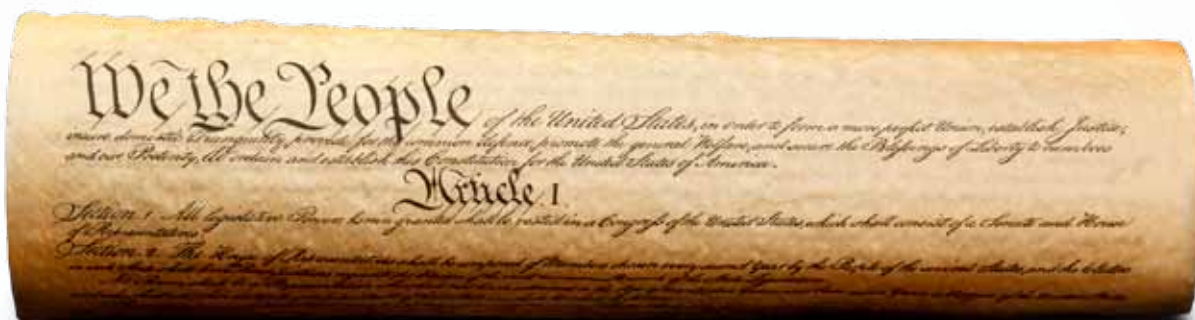 We the People of the United States, in order to form a more perfect Union, establish Justice,
insure domestic Tranquility, provide for the common defence, promote the general Welfare, and secure the Blessings of Liberty to ourselves
and our Posterity, do ordain and establish this Constitution for the United States of America.
Article I
Section 1 All legislative Powers herein granted shall be vested in a Congress of the United States, which shall consist of a Senate and House
of Representatives
Section 2 The House of Representatives shall be composed of Members chosen every second Year by the People of the several States, and the Electors